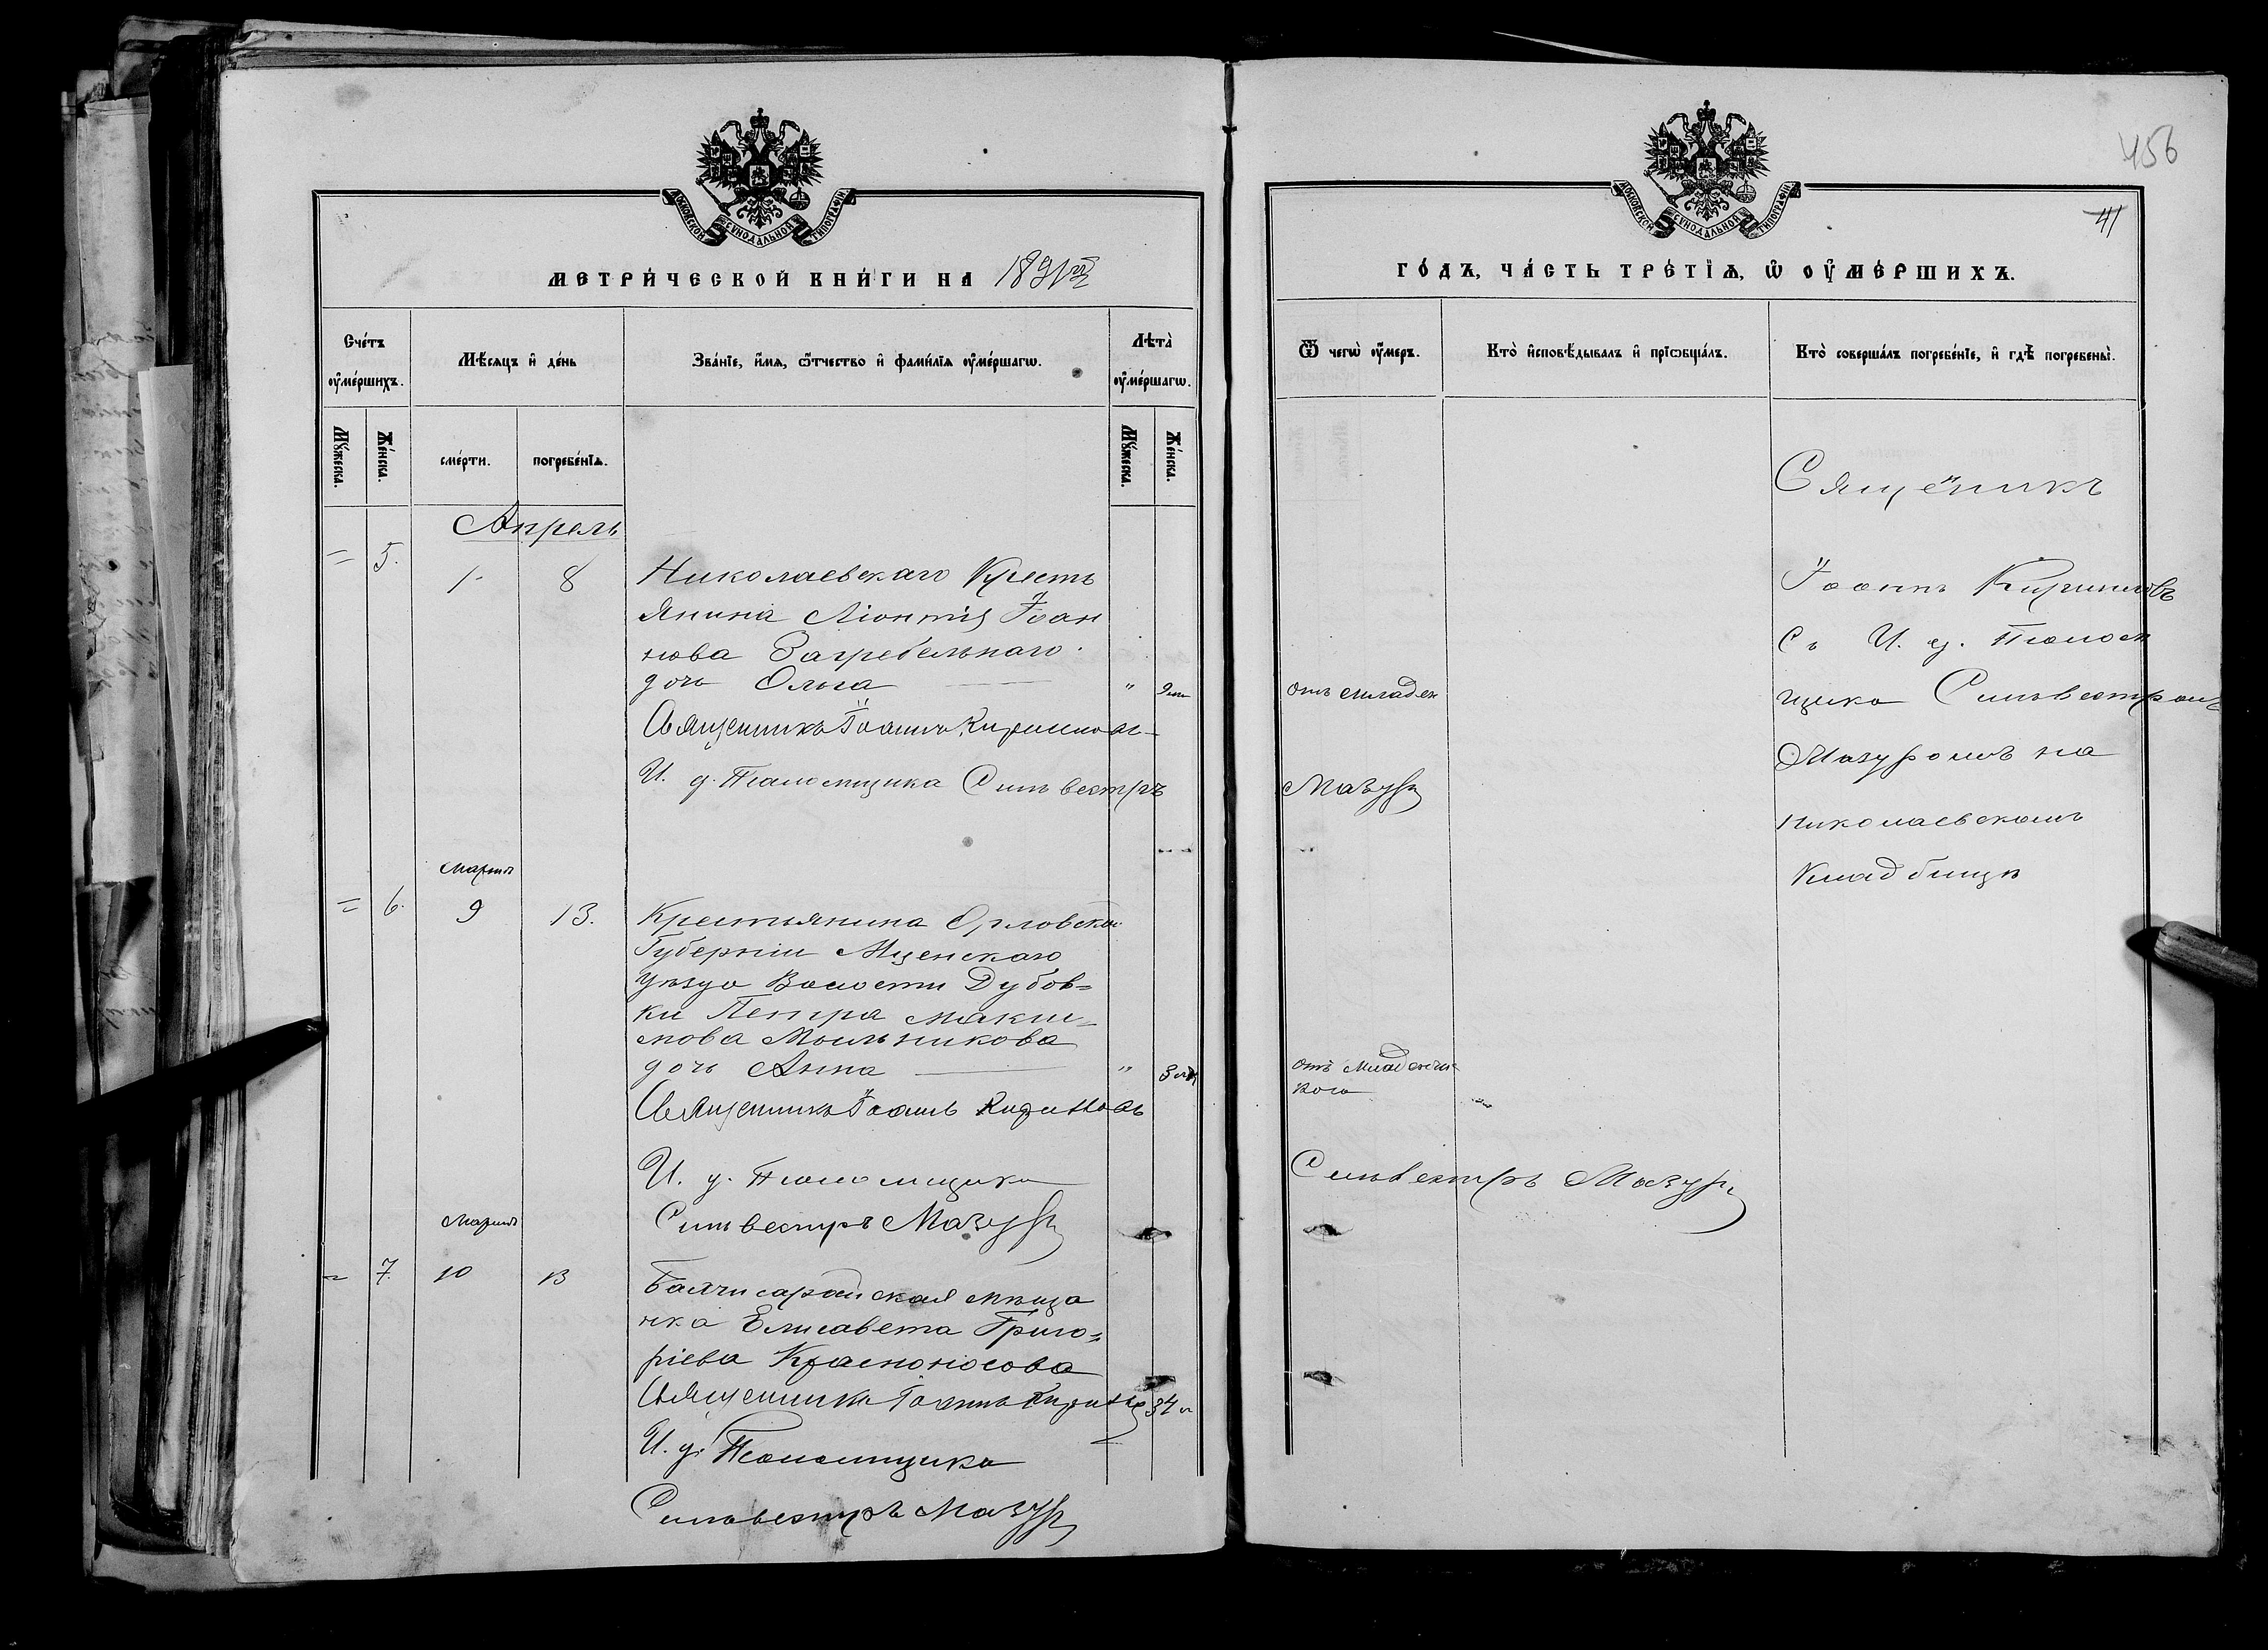 МОСКОВСКОЙ СѴНОДАЛЬНОЙ ТИПОГРАФІИ
МЕТРИ́ЧЕСКОЙ КНИ́ГИ НА 1891й
Сче́тъ ᲂу҆ме́ршихъ.
Мѣ́сяцъ и҆ де́нь
Зва́нїе, и҆́мѧ, ѻ҆́тчество и҆ фами́лїѧ ᲂу҆ме́ршагѡ.
Лѣ́та ᲂу҆ме́ршагѡ.
Мꙋ́жеска.
Же́нска.
сме́рти.
погребе́нїѧ.
Мꙋ́жеска.
Же́нска.
Апрель
= 5. 1. 8 Николаевскаго Кресть
янина Ліонтія Іоан
нова Загребельнаго
дочь Ольга "
Священникъ Іоаннъ Кирилловъ
И. д. Псаломщика Сильвестръ
Мартъ
= 6. 9 13. Крестьянина Орловской
Губерніи Мценскаго
уѣзда Волости Дубов=
ки Петра Макси=
мова Мыльникова
дочь Анна "
Священникъ Іоаннъ Кирилловъ
И. д. Псаломщика
Сильвестръ Мазуръ
Мартъ
= 7. 10 13 Бахчисарайская мѣща
нка Елисавета Григо=
ріева Красноносова
Священникъ Іоаннъ 34
И. д. Псаломщика
Сильвестръ Мазуръ
456
41
МОСКОВСКОЙ СѴНОДАЛЬНОЙ ТИПОГРАФІИ
ГО́ДЪ, ЧА́СТЬ ТРЕ́ТЇѦ, Ѡ҆ ОУ҆МЕ́РШИХЪ.
Ѿ чегѡ̀ ᲂу҆́меръ.
Кто̀ и҆сповѣ́дывалъ и҆ прїѡбща́лъ.
Кто̀ соверша́лъ погребе́нїе, и҆ гдѣ̀ погребены̀.
Священикъ
Іоаннъ Кирилловъ
съ И. д. Псалом
щика Сильвестромъ
Мазуромъ на
николаевскомъ
Кладбищѣ
отъ младен
Мазуръ
отъ Младенчес
кого
Сильвестръ Мазуръ